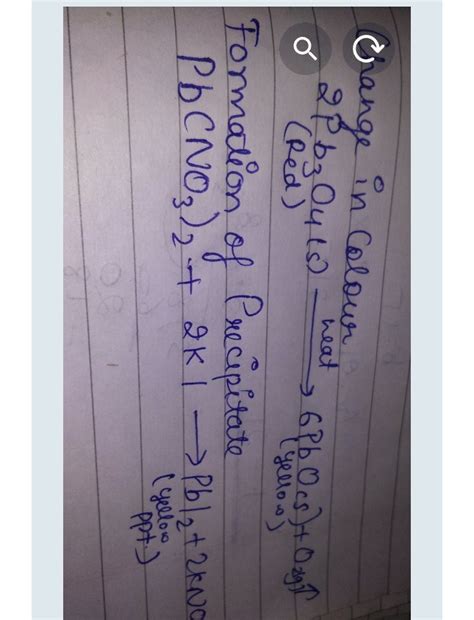 Change in Colour
2Pb3O4(s) heat → 6PbO(s) + O2(g)↑
(Red) (yellow)
Formation of Precipitate
Pb(NO3)2 + 2KI → PbI2 + 2KNO
(yellow
ppt.)